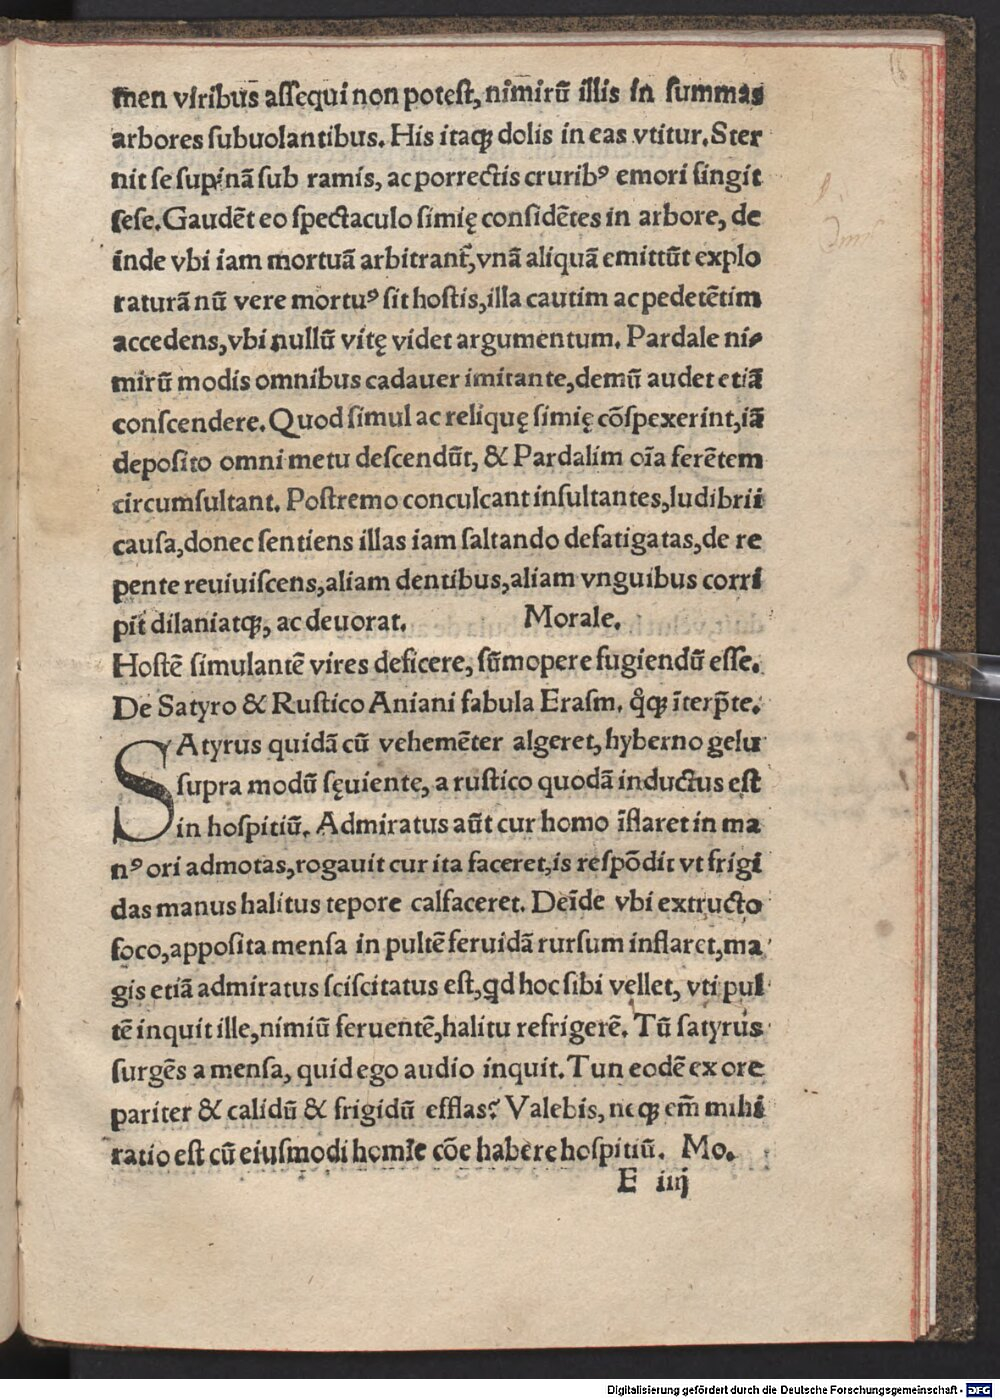 men viribus assequi non potest, nimirũ illis in summas
arbores subuolantibus. His itaqꝫ dolis in eas vtitur. Ster
nit se supinã sub ramis, ac porrectis cruribꝰ emori fingit
sese. Gaudẽt eo spectaculo simię considẽtes in arbore, de
inde vbi iam mortuã arbitrant᷑, vnã aliquã emittũt explo
raturã nũ vere mortuꝰ sit hostis, illa cautim ac pedetẽtim
accedens, vbi nullũ vitę videt argumentum. Pardale ni-
mirũ modis omnibus cadauer imitante, demũ audet etiã
conscendere. Quod simul ac reliquę simię cõspexerint, iã
deposito omni metu descendũt, & Pardalim oĩa ferẽtem
circumsultant. Postremo conculcant insultantes, ludibrii
causa, donec sentiens illas iam saltando defatigatas, de re
pente reuiuiscens, aliam dentibus, aliam vnguibus corri
pit dilaniatqꝫ, ac deuorat. Morale.
Hostẽ simulantẽ vires deficere, sũmopere fugiendũ esse.
De Satyro & Rustico Aniani fabula Erasm. qͦqꝫ ĩterp̃te.
SAtyrus quidã cũ vehemẽter algeret, hyberno gelu
supra modũ sęuiente, a rustico quodã inductus est
in hospitiũ. Admiratus aũt cur homo ĩflaret in ma
nꝰ ori admotas, rogauit cur ita faceret, is respõdit vt frigi
das manus halitus tepore calfaceret. Deĩde vbi extructo
foco, apposita mensa in pultẽ feruidã rursum inflaret, ma
gis etiã admiratus sciscitatus est, qd hoc sibi vellet, vti pul
tẽ inquit ille, nimiũ feruentẽ, halitu refrigerẽ. Tũ satyrus
surgẽs a mensa, quid ego audio inquit. Tun eodẽ ex ore
pariter & calidũ & frigidũ efflas? Valebis, neqꝫ em̃ mihi
ratio est cũ eiusmodi homĩe cõe habere hospitiũ. Mo.
E iiij
Digitalisierung gefördert durch die Deutsche Forschungsgemeinschaft - DFG